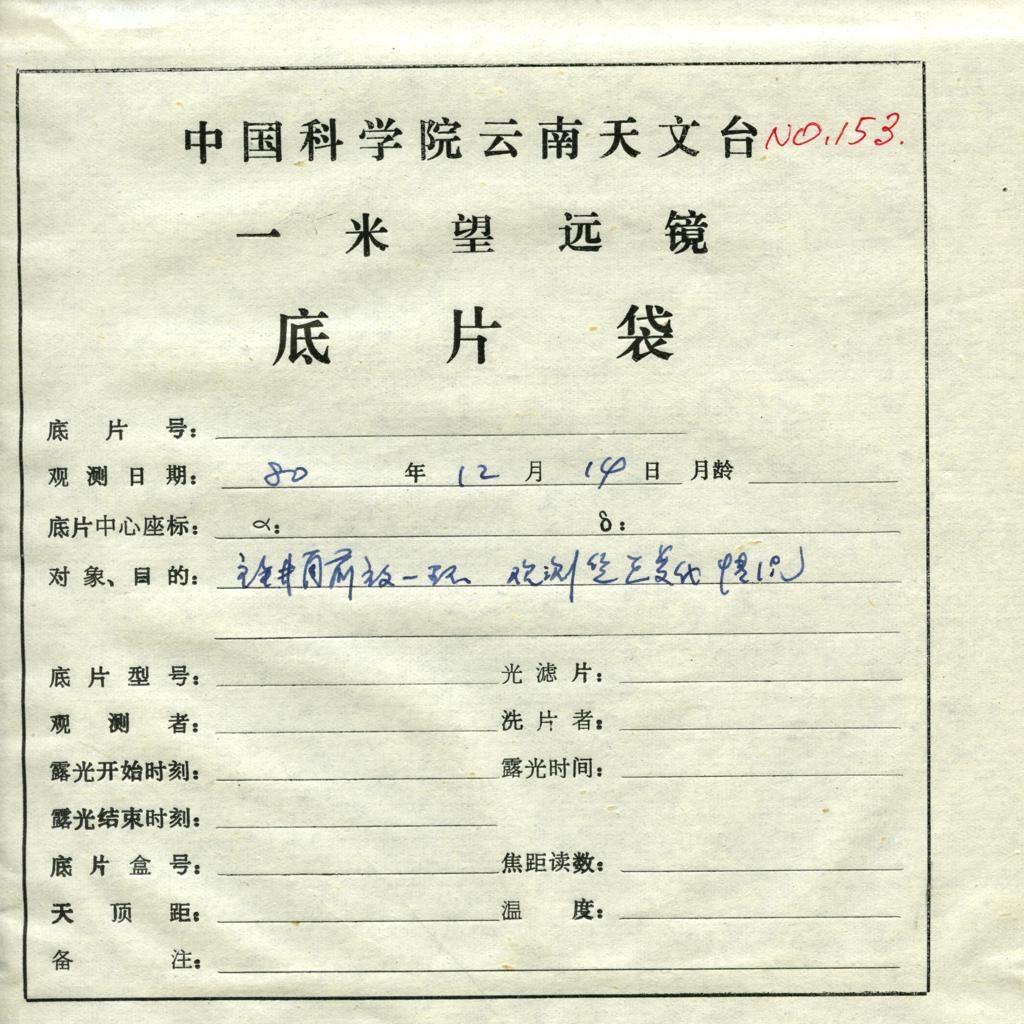 中国科学院云南天文台 NO.153.
一米望远镜
底片袋
底片号:
观测日期: 80 年 12 月 14 日 月龄
底片中心座标: α: δ:
对象、目的: 前放一 观测 变化情况
底片型号: 光滤片:
观测者: 洗片者:
露光开始时刻: 露光时间:
露光结束时刻:
底片盒号: 焦距读数:
天顶距: 温度:
备注: